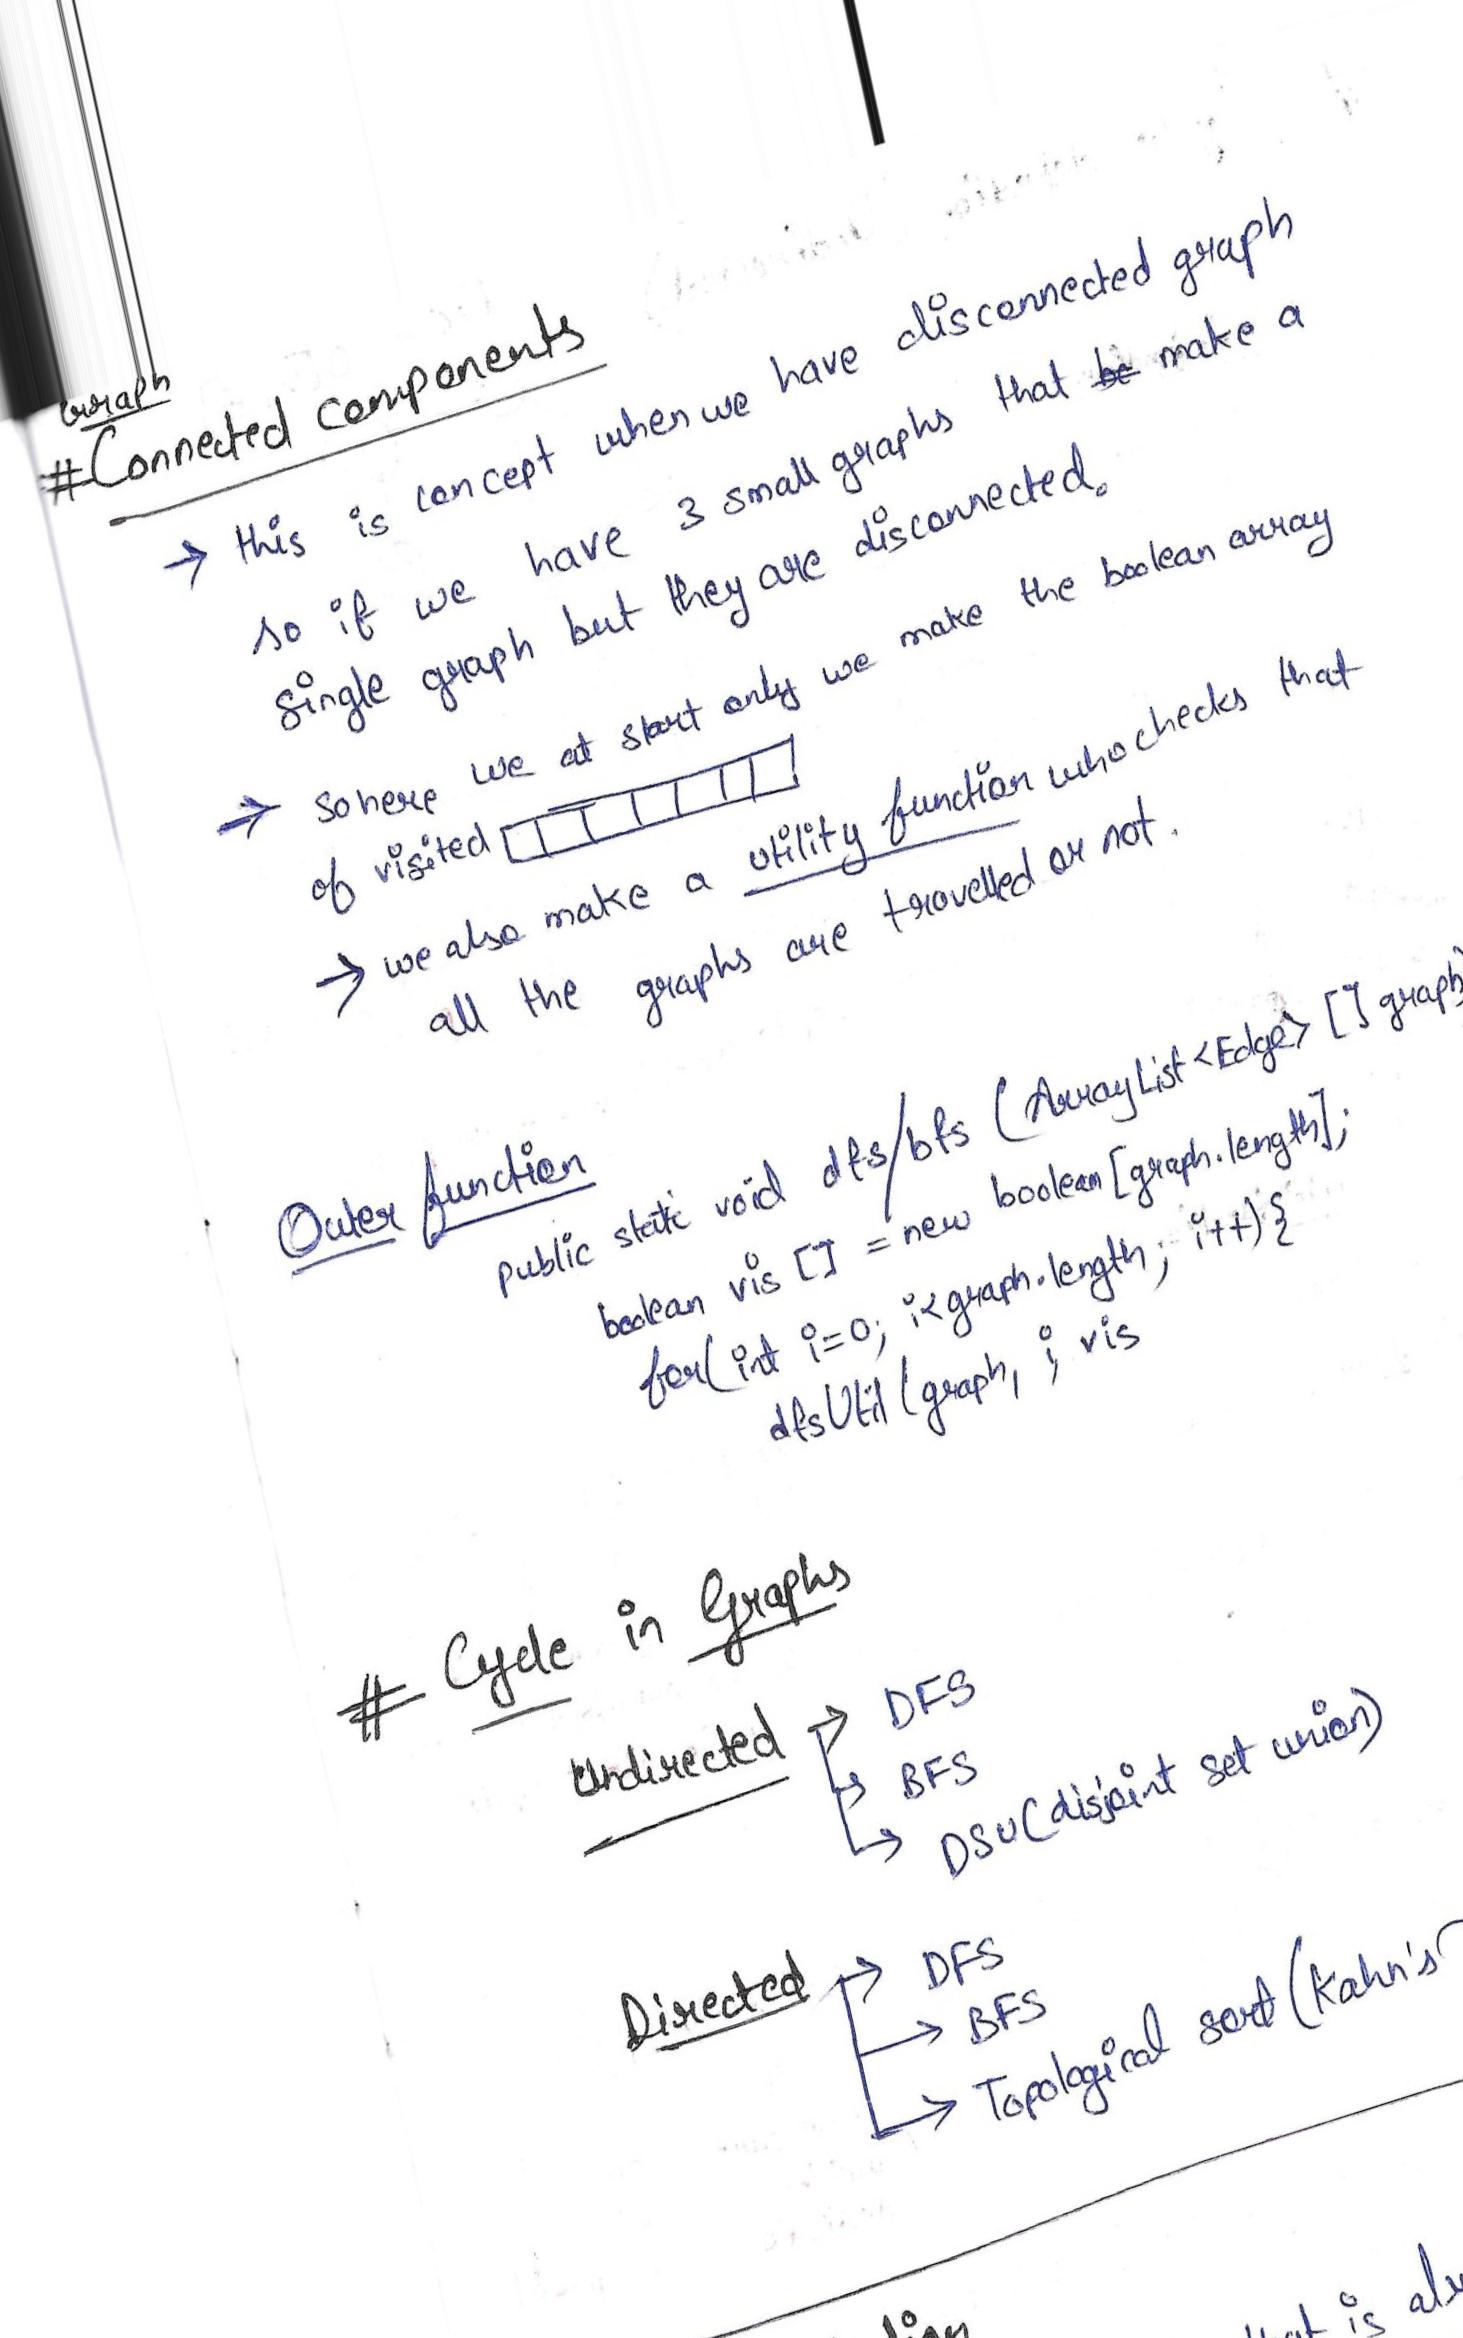 Graph
#Connected components
→ this is concept when we have disconnected graph
so if we have 3 small graphs that be make a
single graph but they are disconnected.
→ so here we at start only we make the boolean array
of visited
→ we also make a utility function who checks that
all the graphs are travelled or not.
Outer function
public static void dfs/bfs (ArrayList<Edge> [] graph)
boolean vis [] = new boolean [graph.length];
for(int i=0; i<graph.length; i++){
dfsUtil (graph, i, vis
# Cycle in Graphs
Undirected → DFS
→ BFS
→ DSU (disjoint set union)
Directed → DFS
→ BFS
→ Topological sort (Kahn's
is